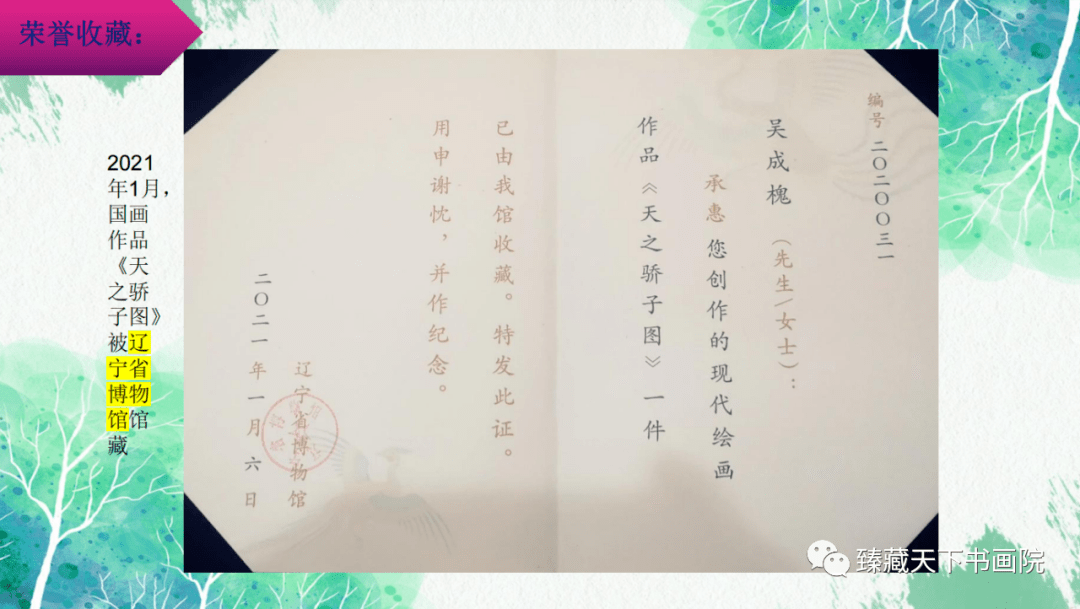 荣誉收藏：
2021
年1月，
国画
作品
《天
之骄
子图》
被辽
宁省
博物
馆馆
藏
编号二〇二〇〇三一
吴成槐（先生/女士）：
承惠您创作的现代绘画
作品《天之骄子图》一件
已由我馆收藏。特发此证。
用申谢忱，并作纪念。
辽宁省博物馆
二〇二一年一月六日
臻藏天下书画院